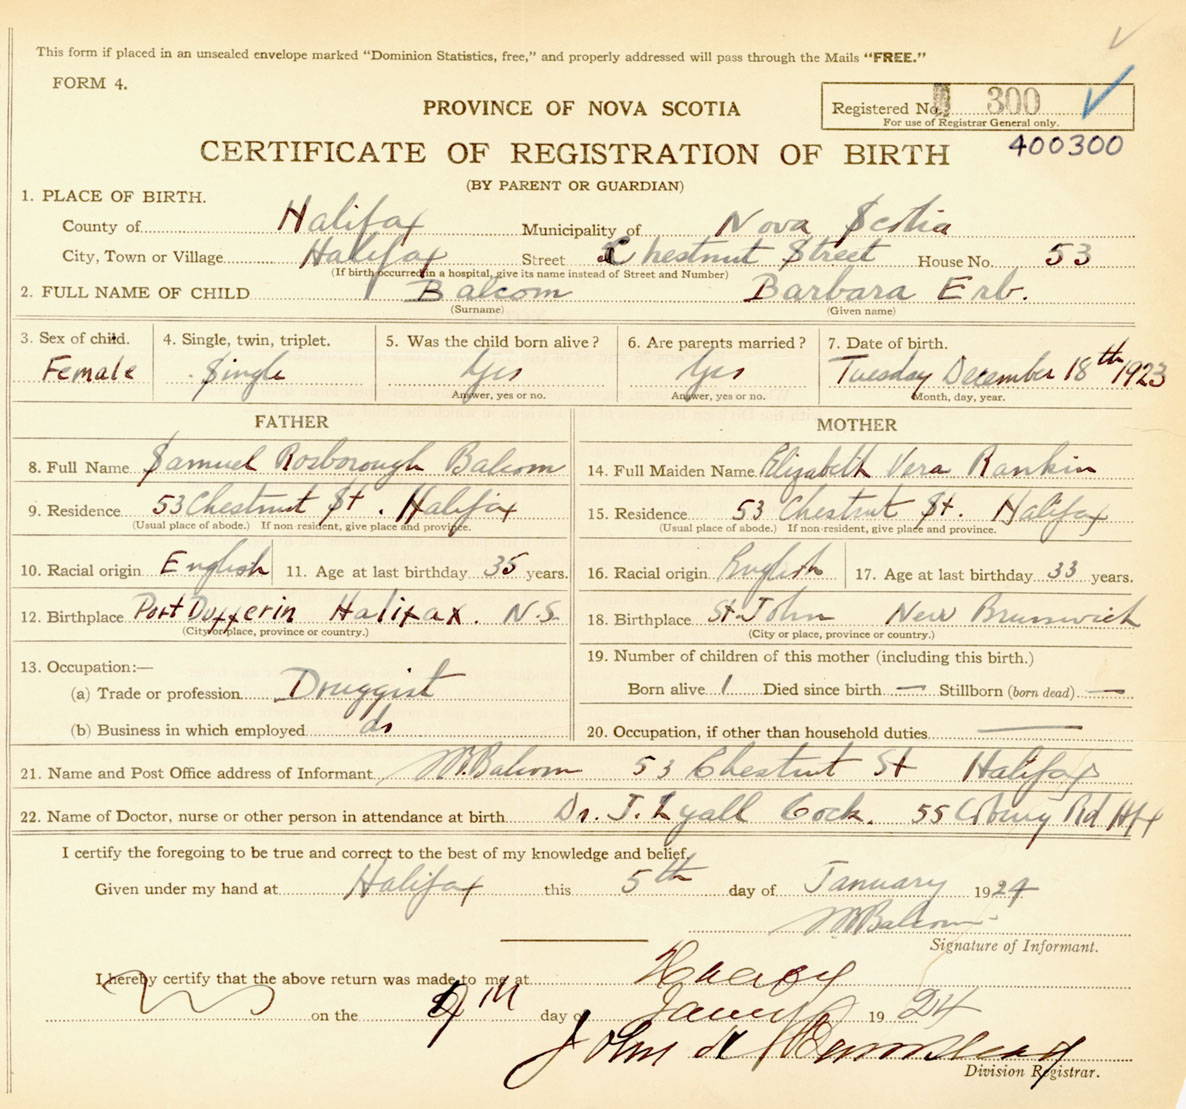 This form if placed in an unsealed envelope marked "Dominion Statistics, free," and properly addressed will pass through the Mails "FREE."
FORM 4.
PROVINCE OF NOVA SCOTIA
Registered No. 300
For use of Registrar General only.
400300
CERTIFICATE OF REGISTRATION OF BIRTH
(BY PARENT OR GUARDIAN)
1. PLACE OF BIRTH.
County of Halifax Municipality of Nova Scotia
City, Town or Village Halifax Street Chestnut Street House No. 53
(If birth occurred in a hospital, give its name instead of Street and Number)
2. FULL NAME OF CHILD Balcom Barbara Erb.
(Surname) (Given name)
3. Sex of child. 4. Single, twin, triplet. 5. Was the child born alive? 6. Are parents married? 7. Date of birth.
Female Single Yes Yes Tuesday December 18th 1923
Answer, yes or no. Answer, yes or no. Month, day, year.
FATHER
8. Full Name Samuel Rosborough Balcom
9. Residence 53 Chestnut St. Halifax
(Usual place of abode.) If non-resident, give place and province.
10. Racial origin English 11. Age at last birthday 35 years.
12. Birthplace Port Dufferin Halifax. N.S.
(City or place, province or country.)
13. Occupation:—
(a) Trade or profession Druggist
(b) Business in which employed do
MOTHER
14. Full Maiden Name Elizabeth Vera Rankin
15. Residence 53 Chestnut St. Halifax
(Usual place of abode.) If non-resident, give place and province.
16. Racial origin English 17. Age at last birthday 33 years.
18. Birthplace St. John New Brunswick
(City or place, province or country.)
19. Number of children of this mother (including this birth.)
Born alive 1 Died since birth — Stillborn (born dead) —
20. Occupation, if other than household duties —
21. Name and Post Office address of Informant Balcom 53 Chestnut St Halifax
22. Name of Doctor, nurse or other person in attendance at birth Dr. J. Lyall Cock. 55 Coburg Rd Hfx
I certify the foregoing to be true and correct to the best of my knowledge and belief.
Given under my hand at Halifax this 5th day of January 1924
Balcom
Signature of Informant.
I hereby certify that the above return was made to me at
on the 9th day of 1924
John
Division Registrar.